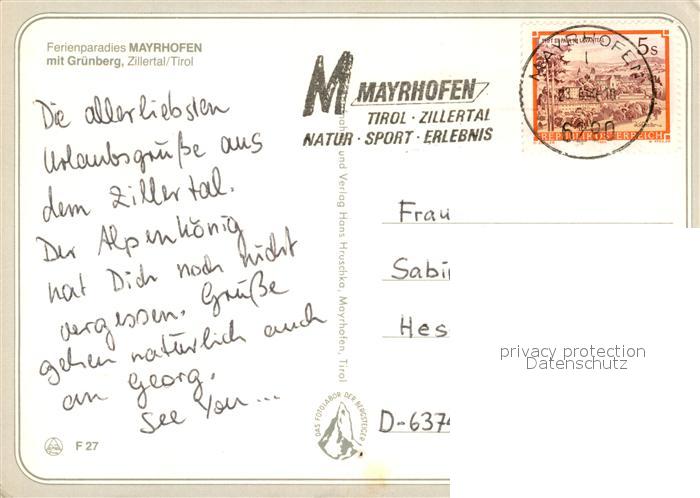 Ferienparadies MAYRHOFEN
mit Grünberg, Zillertal/Tirol
Die allerliebsten
Urlaubsgrüße aus
dem Zillertal.
Der Alpenkönig
hat Dich noch nicht
vergessen. Grüße
gehen natürlich auch
an Georg.
See You ...
F 27
M MAYRHOFEN
TIROL · ZILLERTAL
NATUR · SPORT · ERLEBNIS
und Verlag Hans Hruschka, Mayrhofen, Tirol
DAS FOTOLABOR DER BERGSTEIGER
5s
MAYRHOFEN
REPUBLIK ÖSTERREICH
Frau
Sabi
Hes
D-6374
privacy protection
Datenschutz